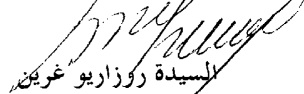 السيدة روزاريو غرين